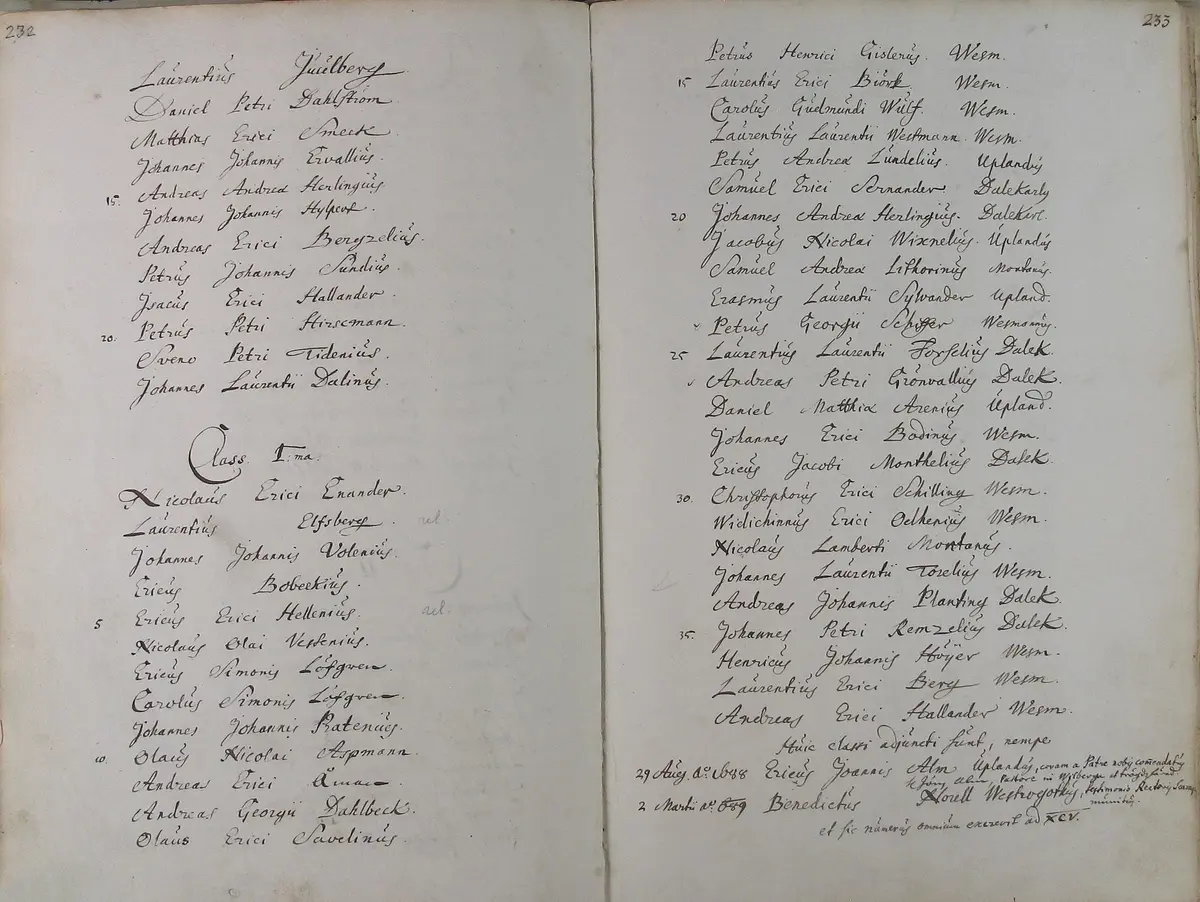 232
Laurentius Juulberg.
Daniel Petri Dahlström.
Matthias Erici Smeck.
Johannes Johannis Ervallius.
15. Andreas Andreæ Herlingius
Johannes Johannis Hylpert.
Andreas Erici Bergzelius.
Petrus Johannis Sundius.
Isacus Erici Hallander.
20. Petrus Petri Hirscmann.
Sveno Petri Tidenius.
Johannes Laurentii Dalinus.
Class. I:ma.
Nicolaus Erici Enander.
Laurentius Elfsberg. rel.
Johannes Johannis Volenius.
Ericus Bobeckius.
5 Ericus Erici Hellenius. rel.
Nicolaus Olai Vessenius.
Ericus Simonis Löfgren.
Carolus Simonis Löfgren.
Johannes Johannis Ratenius.
10. Olaus Nicolai Aspmann.
Andreas Erici
Andreas Georgii Dahlbeck.
Olaus Erici Savelinus.
233
Petrus Henrici Gislerus. Wesm.
15 Laurentius Erici Biörk. Wesm.
Carolus Gudmundi Wulf. Wesm.
Laurentius Laurentii Westmann. Wesm.
Petrus Andreæ Lundelius. Uplandus
Samuel Erici Sernander. Dalekarlus
20 Johannes Andreæ Herlingius. Dalekarl.
Jacobus Nicolai Wixnelius. Uplandus
Samuel Andreæ Lithorinus Montanus.
Erasmus Laurentii Sylvander Upland.
Petrus Georgii Schiffer Wesmannus.
25 Laurentius Laurentii Forselius Dalek.
Andreas Petri Grönvallius Dalek.
Daniel Matthiæ Arenius Upland.
Johannes Erici Bodinus Wesm.
Ericus Jacobi Monthelius Dalek.
30. Christophorus Erici Schilling Wesm.
Widichinnus Erici Odhenius Wesm.
Nicolaus Lamberti Montanus.
Johannes Laurentii Torelius Wesm.
Andreas Johannis Planting Dalek.
35. Johannes Petri Remzelius Dalek.
Henricus Johannis Höijer Wesm.
Laurentius Erici Berg Wesm.
Andreas Erici Hallander Wesm.
Huic classi adjuncti sunt, nempe
29 Aug. Ao. 1688 Ericus Joannis Alm Uplandus, coram a Patre nobis comendatus
Alm, Pastore in
2 Martii ao. 1689 Benedictus Norell Westrogothus, testimonio Rectoris
munitus.
et sic numerus omnium excrevit ad XCV.